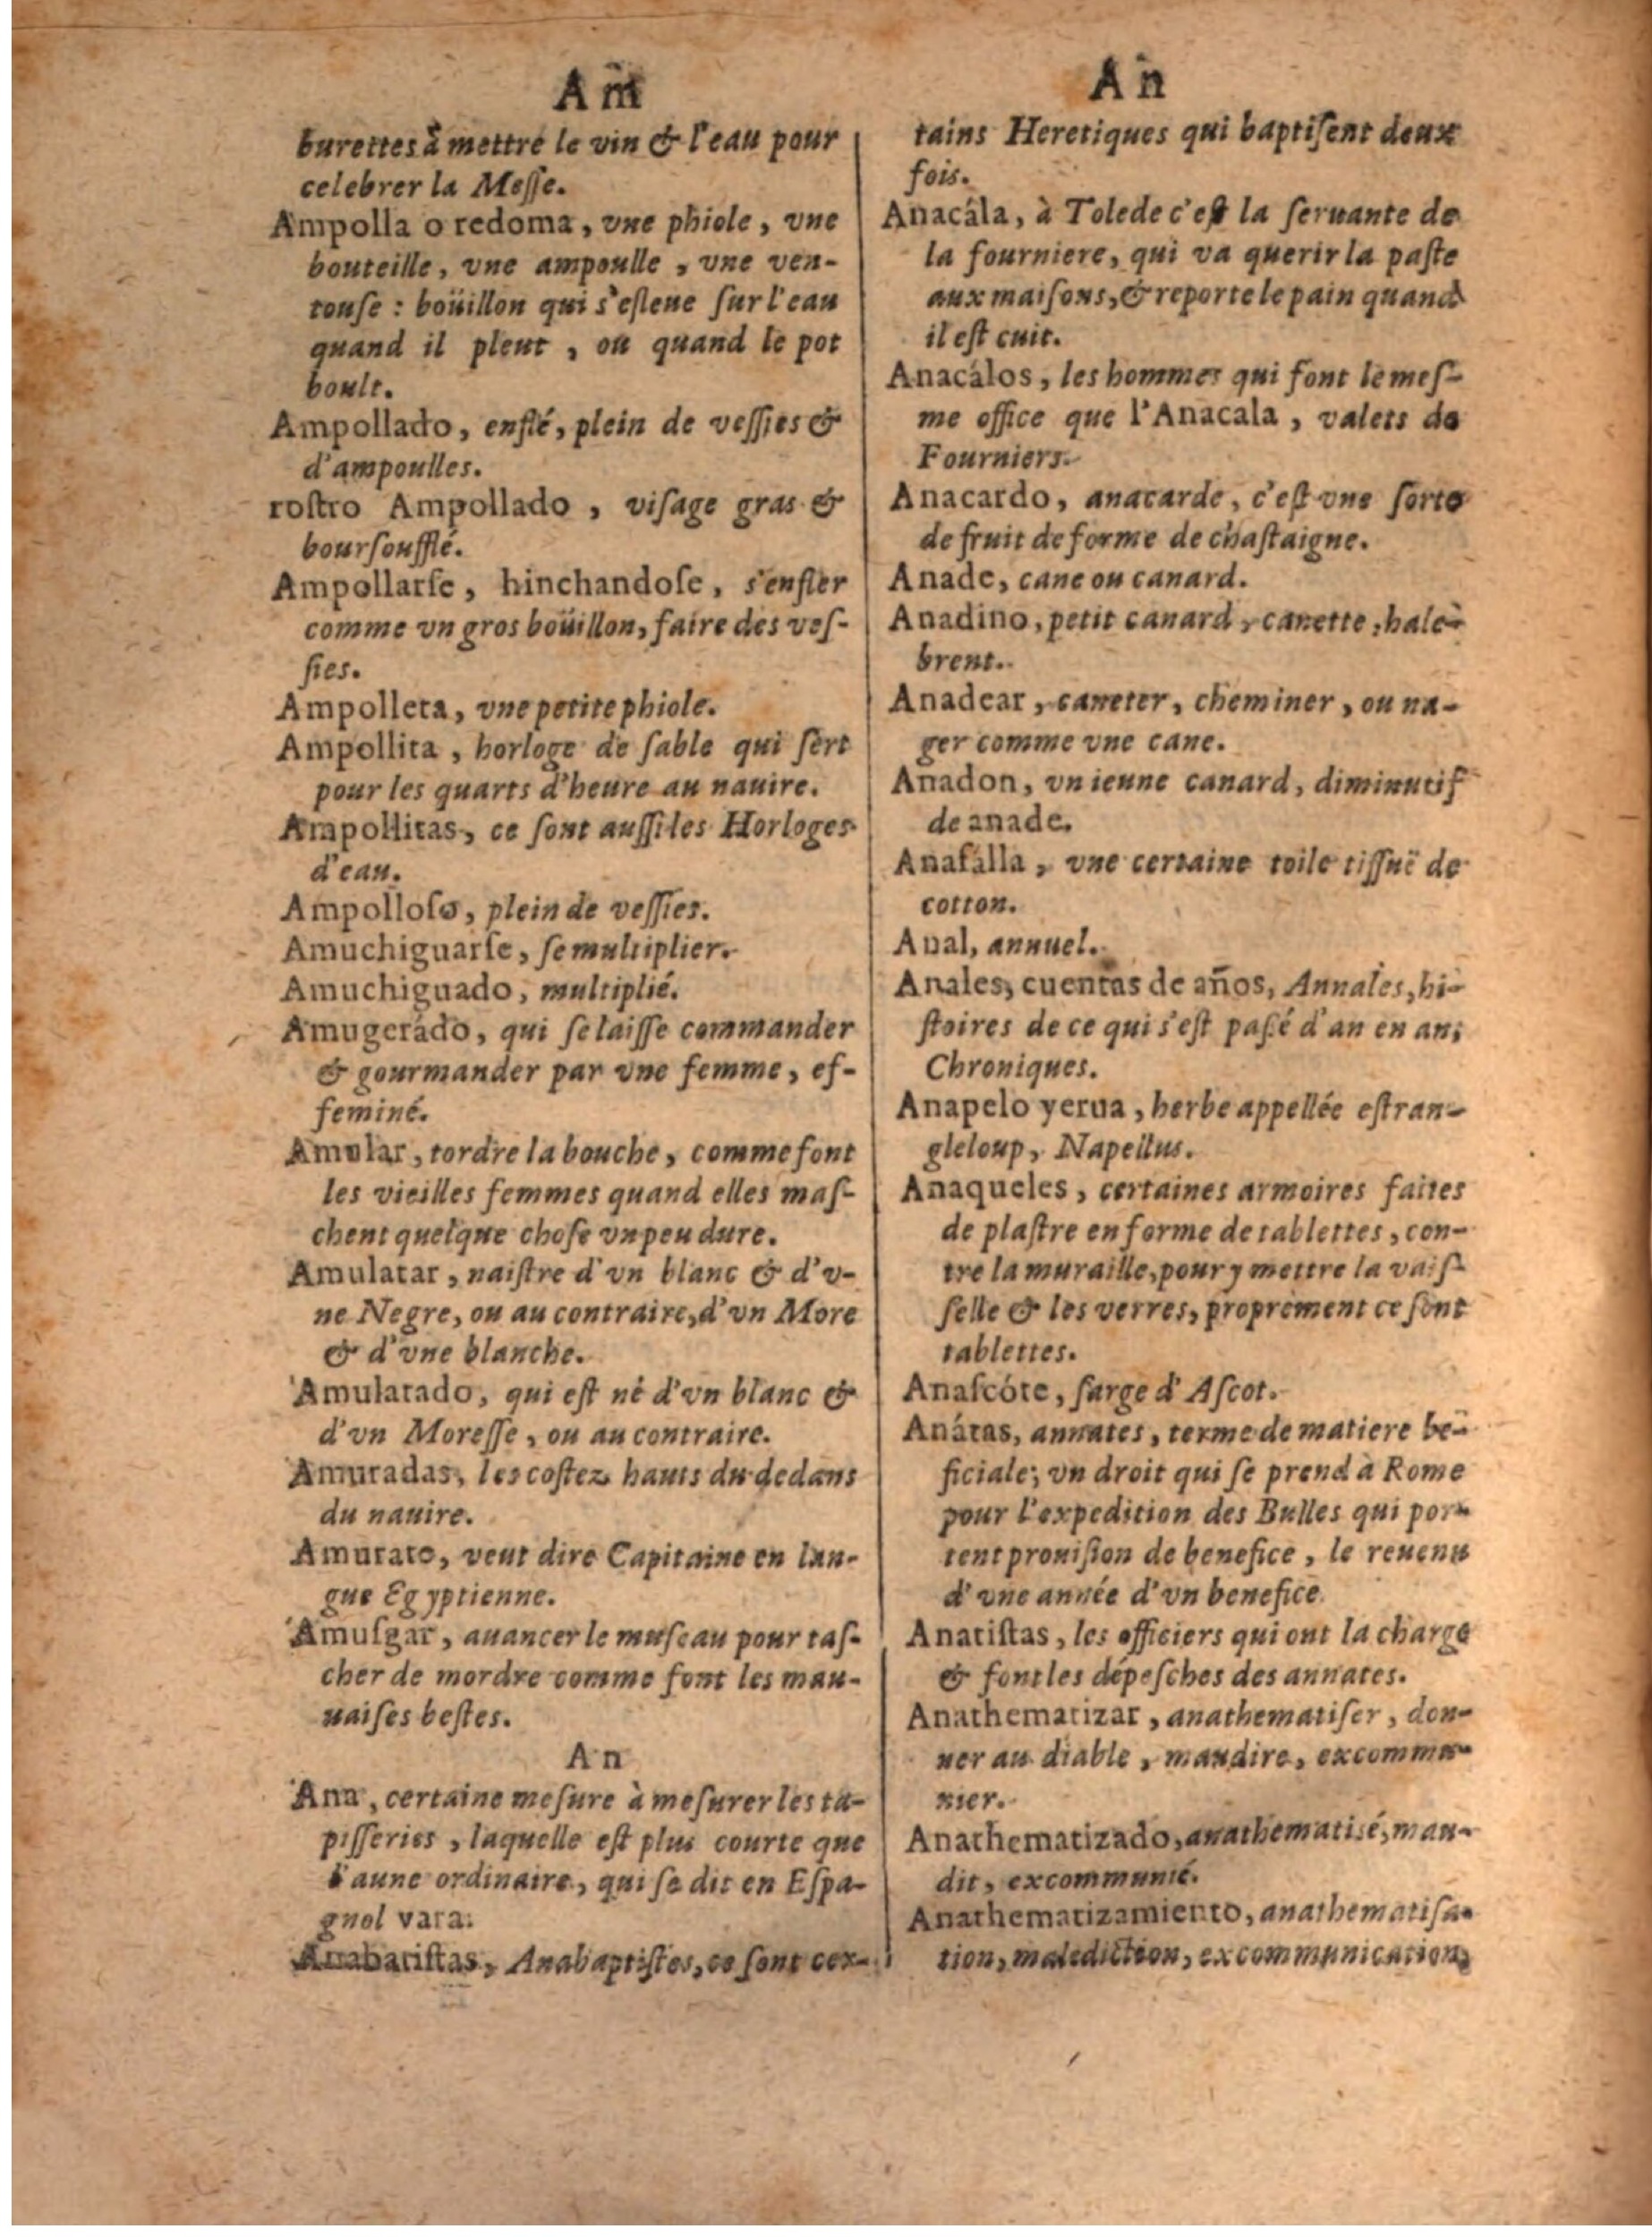 Am
burettes à mettre le vin & l'eau pour
celebrer la Messe.
Ampolla o redoma, vne phiole, vne
bouteille, vne ampoulle, vne ven-
touse : boüillon qui s'esleue ſur l'eau
quand il pleut, ou quand le pot
boult.
Ampollado, enflé, plein de veſſies &
d'ampoulles.
roſtro Ampollado, viſage gras &
bourſoufflé.
Ampollarſe, hinchandoſe, s'enfler
comme vn gros boüillon, faire des veſ-
ſies.
Ampolleta, vne petite phiole.
Ampollita, horloge de ſable qui ſert
pour les quarts d'heure au nauire.
Ampollitas, ce ſont auſſi les Horloges
d'eau.
Ampolloſo, plein de veſſies.
Amuchiguarſe, ſe multiplier.
Amuchiguado, multiplié.
Amugerádo, qui ſe laiſſe commander
& gourmander par vne femme, ef-
feminé.
Amular, tordre la bouche, comme font
les vieilles femmes quand elles maſ-
chent quelque choſe vn peu dure.
Amulatar, naiſtre d'vn blanc & d'v-
ne Negre, ou au contraire, d'vn More
& d'vne blanche.
Amulatado, qui eſt né d'vn blanc &
d'vn Moreſſe, ou au contraire.
Amuradas, les coſtez hauts du dedans
du nauire.
Amurato, veut dire Capitaine en lan-
gue Egyptienne.
Amuſgar, auancer le muſeau pour taſ-
cher de mordre comme font les mau-
uaiſes beſtes.
An
Ana, certaine meſure à meſurer les ta-
piſſeries, laquelle eſt plus courte que
l'aune ordinaire, qui ſe dit en Eſpa-
gnol vara.
Anabatiſtas, Anabaptiſtes, ce ſont cer-
An
tains Heretiques qui baptiſent deux
fois.
Anacála, à Tolede c'eſt la ſeruante de
la fourniere, qui va querir la paſte
aux maiſons, & reporte le pain quand
il eſt cuit.
Anacálos, les hommes qui font le meſ-
me office que l'Anacala, valets de
Fourniers.
Anacardo, anacarde, c'eſt vne ſorte
de fruit de forme de chaſtaigne.
Anade, cane ou canard.
Anadino, petit canard, canette, hale-
brent.
Anadear, caneter, cheminer, ou na-
ger comme vne cane.
Anadon, vn ieune canard, diminutif
de anade.
Anafálla, vne certaine toile tiſſuë de
cotton.
Anal, annuel.
Anales, cuentas de años, Annales, hi-
ſtoires de ce qui s'eſt paſſé d'an en an,
Chroniques.
Anapelo yerua, herbe appellée eſtran-
gleloup, Napellus.
Anaqueles, certaines armoires faites
de plaſtre en forme de tablettes, con-
tre la muraille, pour y mettre la vaiſ-
ſelle & les verres, proprement ce ſont
tablettes.
Anaſcóte, ſarge d'Aſcot.
Anátas, annates, terme de matiere be-
ficiale; vn droit qui ſe prend à Rome
pour l'expedition des Bulles qui por-
tent prouiſion de benefice, le reuenu
d'vne année d'vn benefice.
Anatiſtas, les officiers qui ont la charge
& font les dépeſches des annates.
Anathematizar, anathematiſer, don-
ner au diable, maudire, excommu-
nier.
Anathematizado, anathematisé, mau-
dit, excommunié.
Anathematizamiento, anathematiſa-
tion, malediction, excommunication,